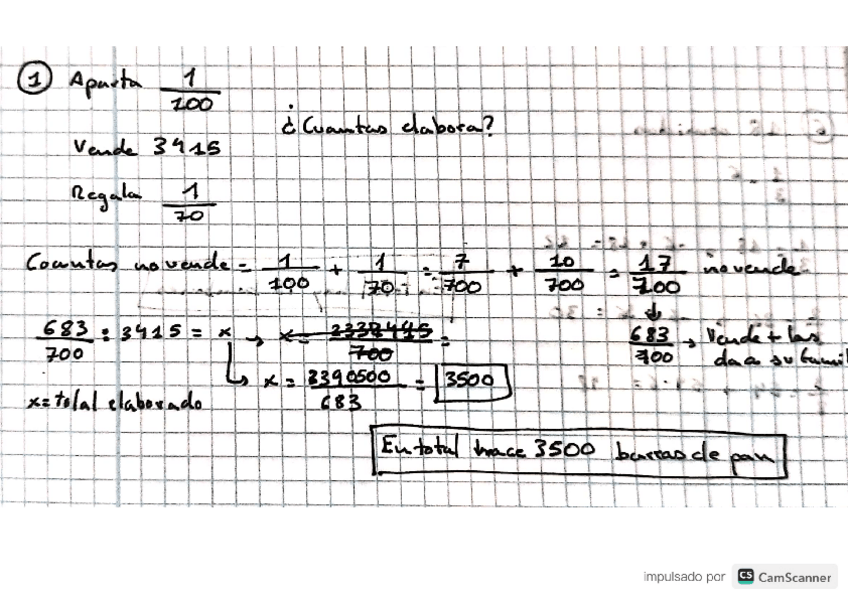 1 Aparta 1/100
¿Cuantas elabora?
Vende 3415
Regala 1/70
Cuantas no vende = 1/100 + 1/70 = 7/700 + 10/700 = 17/700 no vende
683/700 : 3415 = x → x = 2332445/700 =
683/700 → Vende + las da a su famil
↳ x = 2390500/683 = 3500
x = total elaborado
En total hace 3500 barras de pan
impulsado por CS CamScanner